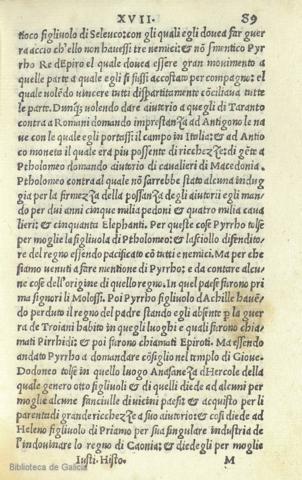 XVII. 89
tioco figliuolo di Seleuco:con gli quali egli douea far guer
ra accio ch'ello non hauessi tre nemici:& nõ smentico Pyr
rho Re dEpiro el quale douea essere gran mouimento a
quelle parte a quale egli si fussi accostato per compagno: el
qual volẽdo vincere tutti dispartamente cõciliaua tutte
le parte. Dunq; volendo dare aiutorio a quegli di Taranto
contra a Romani domando imprestanza ad Antigono le na
ue con le quale egli portassi il campo in Italia: & ad Antio
co moneta il quale era piu possente di ricchezze: di gẽte a
Ptholomeo domando aiutorio di caualieri di Macedonia.
Ptholomeo contra al quale nõ sarrebbe stato alcuna indug
gia per la firmezza della possanza degli aiutorii egli man
do per dui anni cinque milia pedoni & quatro milia caua
lieri: & cinquanta Elephanti. Per queste cose Pyrrho tolse
per moglie la figliuola di Ptholomeo: & lasciollo difendito
re del regno essendo pacificato cõ tutti e nemici. Ma per che
siamo venuti a fare mentione di Pyrrho: e da contare alcu
ne cose dell'origine di quello regno. In quel paese furono pri
ma signori li Molossi. Poi Pyrrho figliuolo d'Achille hauẽ
do perduto il regno del padre stando egli absente ꝑ la guer
ra de Troiani habito in quegli luoghi e quali furono chia
mati Pirrhidi: & poi furono chiamati Epiroti. Ma essendo
andato Pyrrho a domandare cõsiglio nel tempio di Gioue
Dodoneo tolse in quello luogo Anasaneza d'Hercole della
quale genero otto figliuoli & di quelli diede ad alcuni per
moglie alcune fanciulle di uicini paesi: & acquisto per li
parentadi grande ricchezze a suo aiutorio: & cosi diede ad
Heleno figliuolo di Priamo per sua singulare industria de
l'indouinare lo regno di Caonia: & diedegli per moglie
Iusti. Histo. M
Biblioteca de Galicia